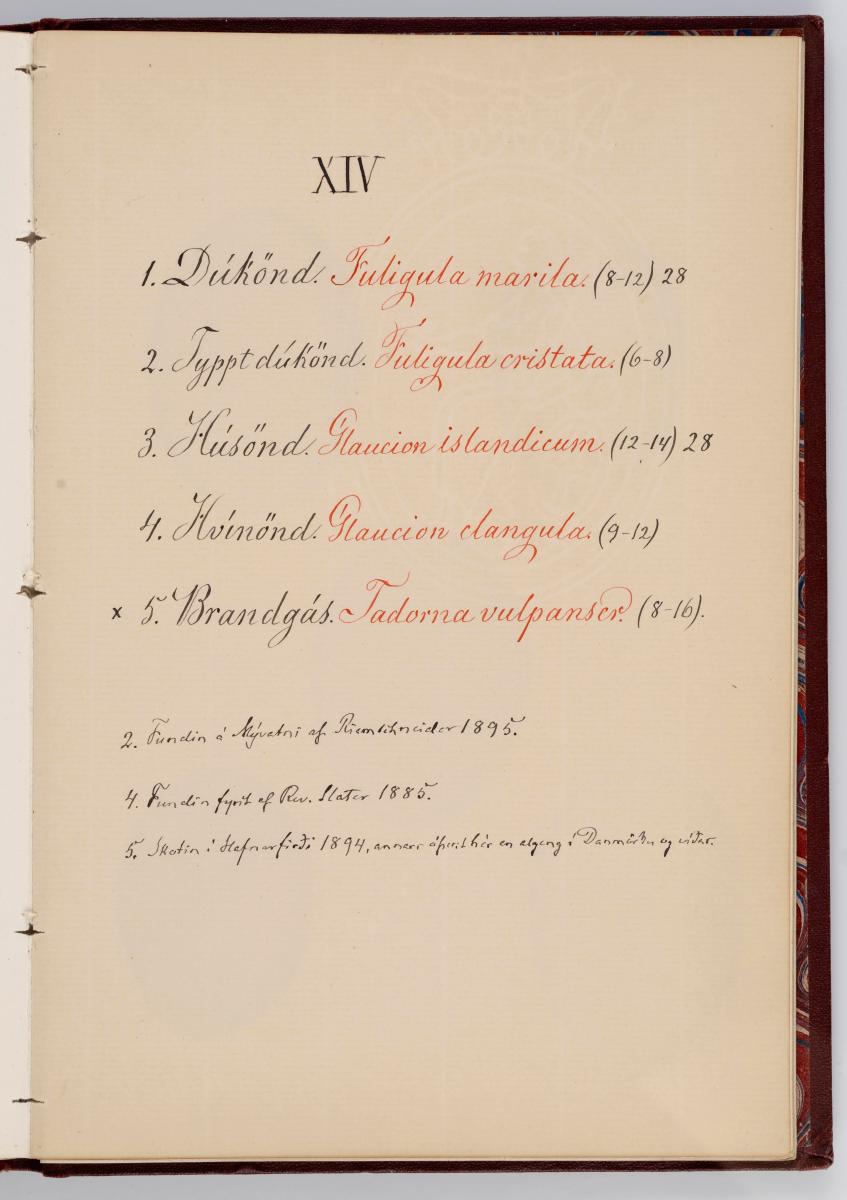 XIV
1. Dúkönd. Fuligula marila. (8-12) 28
2. Typpt dúkönd. Fuligula cristata. (6-8)
3. Húsönd. Glaucion islandicum. (12-14) 28
4. Hvínönd. Glaucion clangula. (9-12)
x 5. Brandgás. Tadorna vulpanser. (8-16).
2. Fundin á Mývatni af Riemschneider 1895.
4. Fundin fyrst af Rev. Slater 1885.
5. Skotin í Hafnarfirði 1894, annars óþekt hér en algeng í Danmörku og víðar.